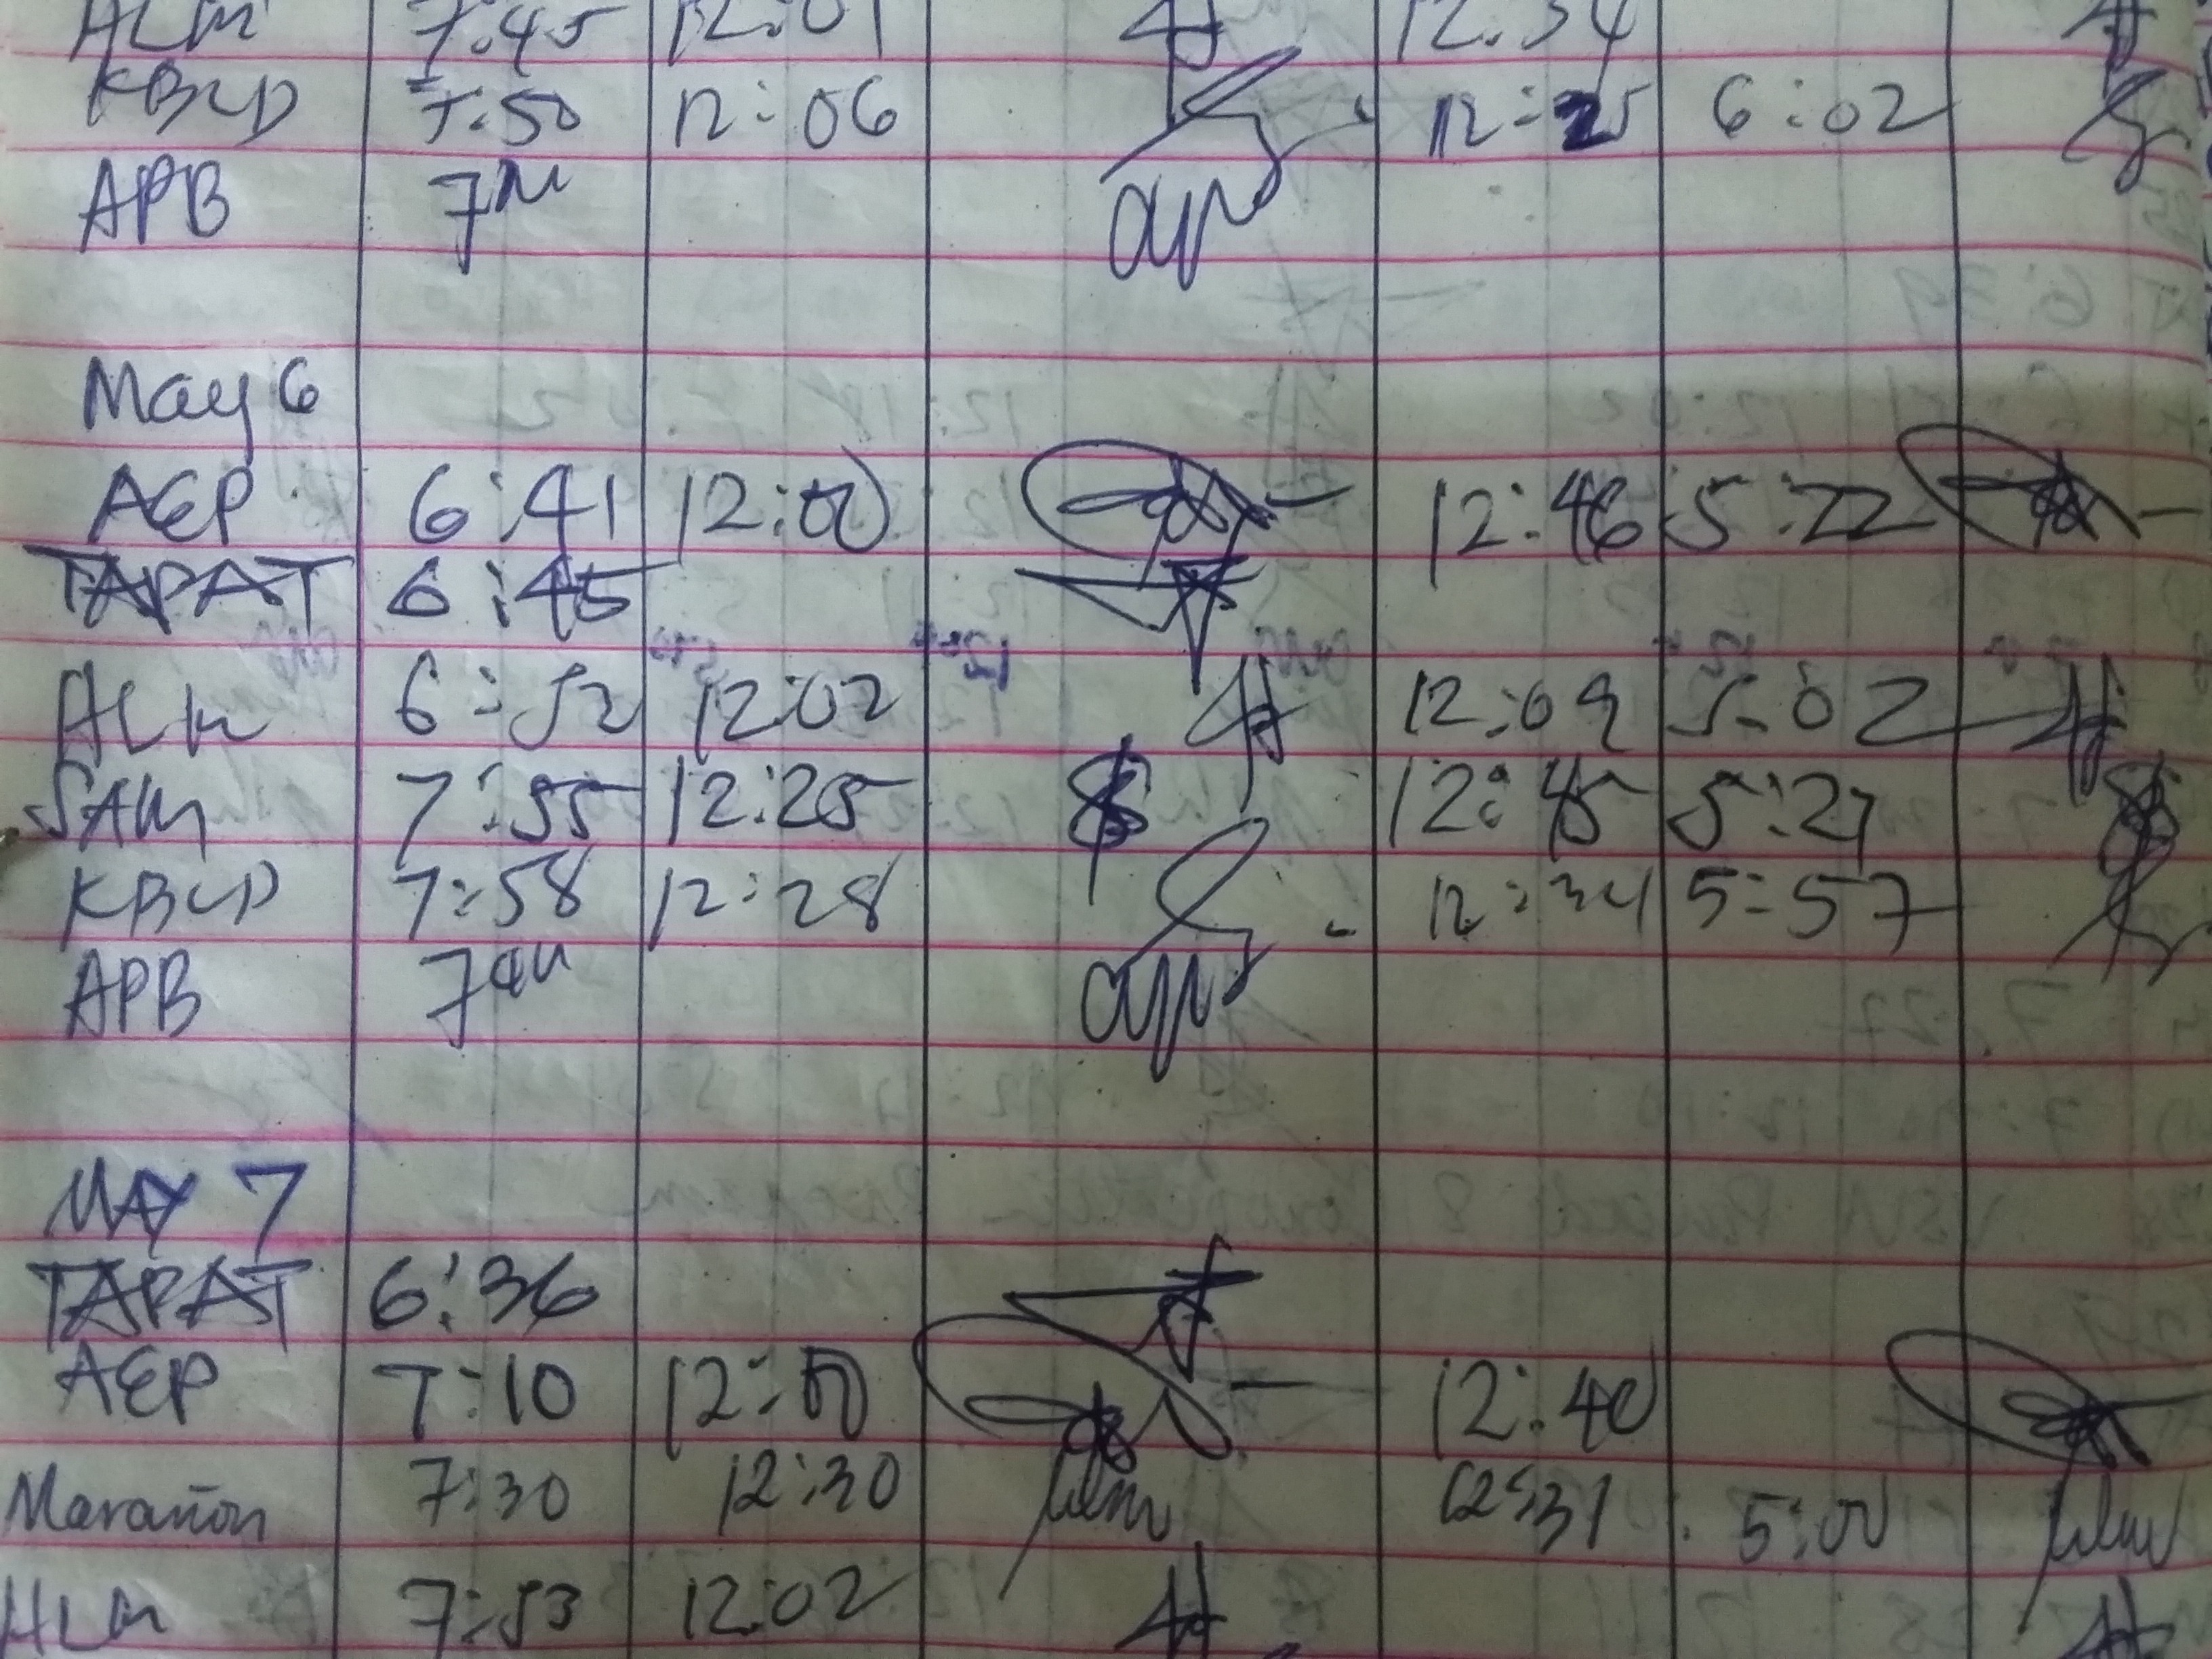 ALM 7:45 12:01 12:34
KBCD 7:50 12:06 12:25 6:02
APB 7
May 6
AEP 6:41 12:00 12:46 5:22
TAPAT 6:45
ALM 6:52 12:02 12:09 5:02
SAM 7:55 12:25 12:45 5:27
KBCD 7:58 12:28 12:34 5:57
APB 7am
MAY 7
TAPAT 6:36
AEP 7:10 12:40
Marañon 7:30 12:30 12:31 5:00
ALM 7:53 12:02